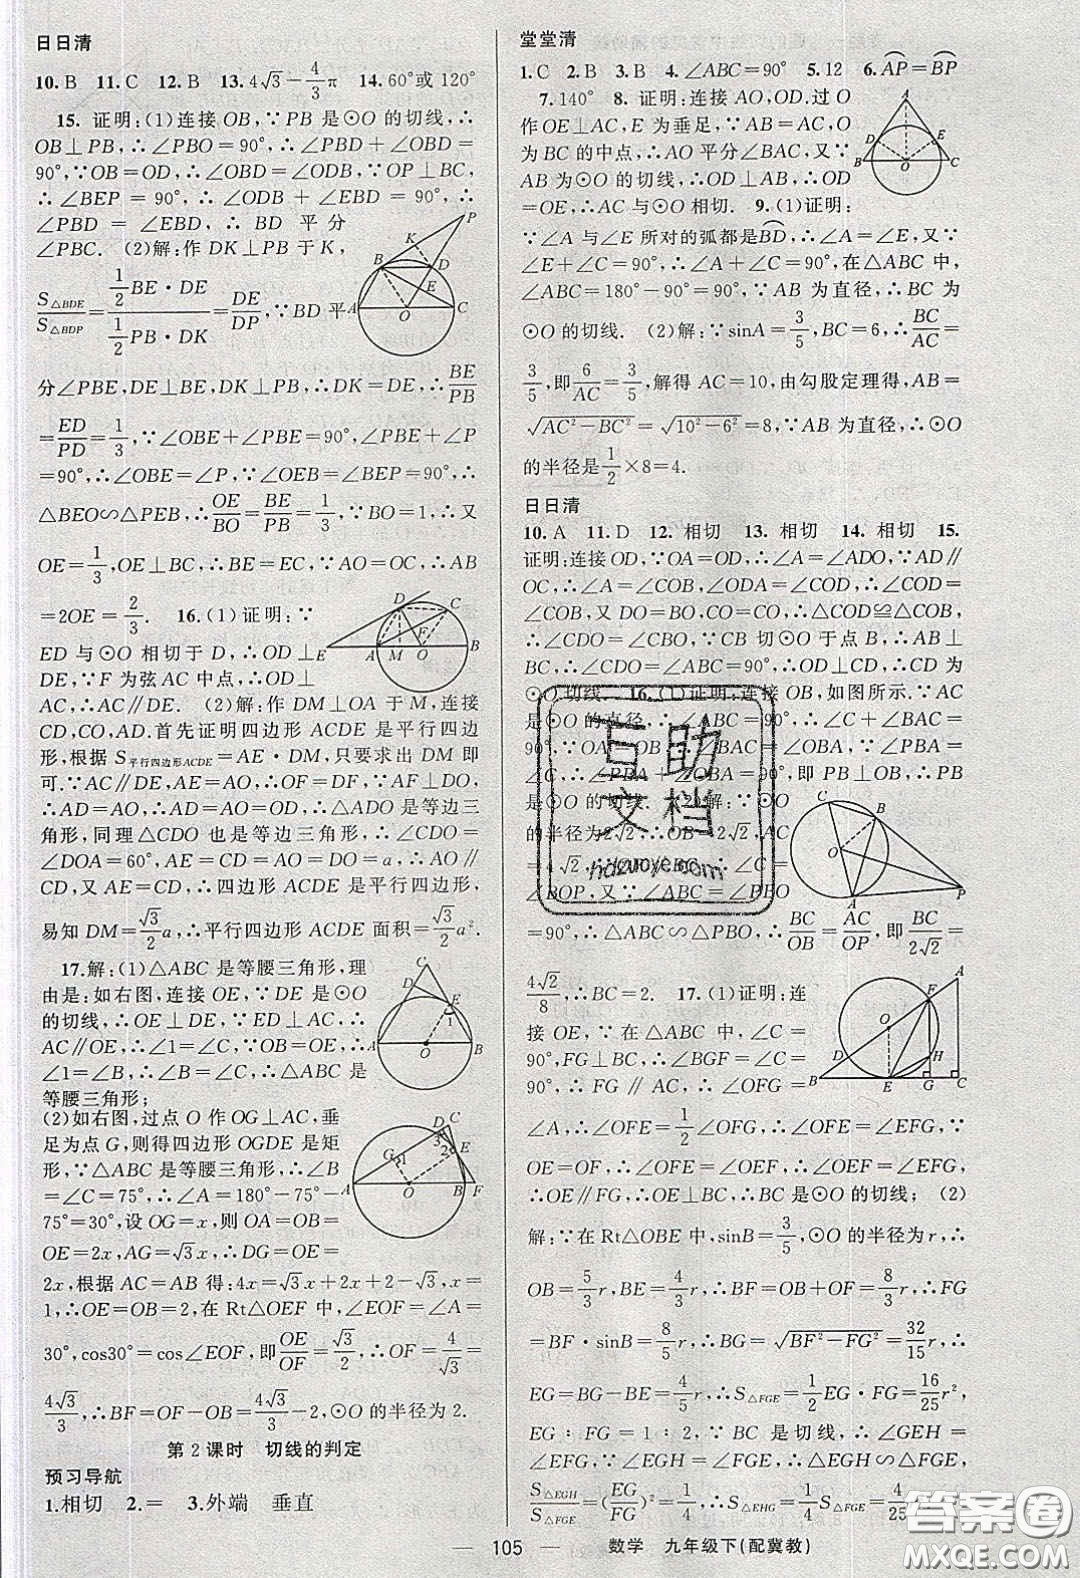 日日清
10. B　11. C　12. B　13. 4√3－4/3π　14. 60°或120°
15. 证明:(1)连接OB,∵PB是⊙O的切线,∴
OB⊥PB,∴∠PBO=90°,∴∠PBD+∠OBD=
90°,∵OB=OD,∴∠OBD=∠ODB,∵OP⊥BC,
∴∠BEP=90°,∴∠ODB+∠EBD=90°,∴
∠PBD=∠EBD,∴BD平分
∠PBC.　(2)解:作DK⊥PB于K,
S△BDE/S△BDP=(1/2BE·DE)/(1/2PB·DK)=DE/DP,∵BD平
分∠PBE,DE⊥BE,DK⊥PB,∴DK=DE,∴BE/PB
=ED/PD=1/3,∵∠OBE+∠PBE=90°,∠PBE+∠P
=90°,∴∠OBE=∠P,∵∠OEB=∠BEP=90°,∴
△BEO∽△PEB,∴OE/BO=BE/PB=1/3,∵BO=1,∴
OE=1/3,∵OE⊥BC,∴BE=EC,∵AO=OC,∴AB
=2OE=2/3.　16.(1)证明:∵
ED与⊙O相切于D,∴OD⊥
DE,∵F为弦AC中点,∴OD⊥
AC,∴AC∥DE.　(2)解:作DM⊥OA于M,连接
CD,CO,AD.首先证明四边形ACDE是平行四边
形,根据S平行四边形ACDE=AE·DM,只要求出DM即
可.∵AC∥DE,AE=AO,∴OF=DF,∵AF⊥DO,
∴AD=AO,∴AD=AO=OD,∴△ADO是等边三
角形,同理△CDO也是等边三角形,∴∠CDO=
∠DOA=60°,AE=CD=AD=AO=DO=a,∴AO∥
CD,又AE=CD,∴四边形ACDE是平行四边形,
易知DM=√3/2a,∴平行四边形ACDE面积=√3/2a².
17.解:(1)△ABC是等腰三角形,理
由是:如右图,连接OE,∵DE是⊙O
的切线,∴OE⊥DE,∵ED⊥AC,∴
AC∥OE,∴∠1=∠C,∵OB=OE,∴
∠1=∠B,∴∠B=∠C,∴△ABC是
等腰三角形;
(2)如右图,过点O作OG⊥AC,垂
足为点G,则得四边形OGDE是矩
形,∵△ABC是等腰三角形,∴∠B
=∠C=75°,∴∠A=180°-75°-
75°=30°,设OG=x,则OA=OB=
OE=2x,AG=√3x,∴DG=OE=
2x,根据AC=AB得:4x=√3x+2x+2-√3,x=1,
∴OE=OB=2,在Rt△OEF中,∠EOF=∠A=
30°,cos30°=cos∠EOF,即OE/OF=√3/2,∴OF=4/√3=
4√3/3,∴BF=OF-OB=4√3/3-2,⊙O的半径为2.
第2课时　切线的判定
预习导航
1.相切　2.=　3.外端　垂直
堂堂清
1.C　2.B　3.B　4.∠ABC=90°　5.12　6.AP=BP
7.140°　8. 证明:连接AO,OD.过O
作OE⊥AC,E为垂足,∵AB=AC,O
为BC的中点,∴AO平分∠BAC,又∵
AB为⊙O的切线,∴OD⊥AB,∴OD
=OE,∴AC与⊙O相切.　9.(1)证明:
∵∠A与∠E所对的弧都是BD,∴∠A=∠E,又∵
∠E+∠C=90°,∴∠A+∠C=90°,在△ABC中,
∠ABC=180°-90°=90°,∵AB为直径,∴BC为
⊙O的切线.　(2)解:∵sinA=3/5,BC=6,∴BC/AC=
3/5,即6/AC=3/5,解得AC=10,由勾股定理得,AB=
√(AC²-BC²)=√(10²-6²)=8,∵AB为直径,∴⊙O
的半径是1/2×8=4.
日日清
10. A　11. D　12. 相切　13. 相切　14. 相切　15.
证明:连接OD,∵OA=OD,∴∠A=∠ADO,∵AD∥
OC,∴∠A=∠COB,∠ADO=∠COD,∴∠COD=
∠COB,又DO=BO,CO=CO,∴△COD≌△COB,
∴∠CDO=∠CBO,∵CB切⊙O于点B,∴AB⊥
BC,∴∠CBO=90°,∴∠CDO=90°,∴CD为
⊙O切线.　16.(1)证明:连接OB,如图所示.∵AC
是⊙O的直径,∴∠ABC=90°,∴∠C+∠BAC=
=90°,∴△ABC∽△PBO,∴BC/OB=AC/OP,即BC/2√2=
4√2/8,∴BC=2.　17.(1)证明:连
接OE,∵在△ABC中,∠C=
90°,FG⊥BC,∴∠BGF=∠C=
90°,∴FG∥AC,∴∠OFG=
∠A,∴∠OFE=1/2∠OFG,∴∠OFE=∠EFG,∵
OE=OF,∴∠OFE=∠OEF,∴∠OEF=∠EFG,
∴OE∥FG,∴OE⊥BC,∴BC是⊙O的切线;　(2)
解:∵在Rt△OBE中,sinB=3/5,⊙O的半径为r,∴
OB=5/3r,BE=4/3r,∴BF=OB+OF=8/3r,∴FG
=BF·sinB=8/5r,∴BG=√(BF²-FG²)=32/15r,∴
EG=BG-BE=4/5r,∴S△FGE=1/2EG·FG=16/25r²,
EG∶FG=1∶2,∵BC是切线,∴∠GEH=
∠EFG,∵∠EGH=∠FGE,∴△EGH∽△FGE,∴
S△EGH/S△FGE=(EG/FG)²=1/4,∴S△EHG=1/4S△FGE=4/25
105　数学　九年级下(配冀教)
互助
文档
答案圈
MXQE.COM